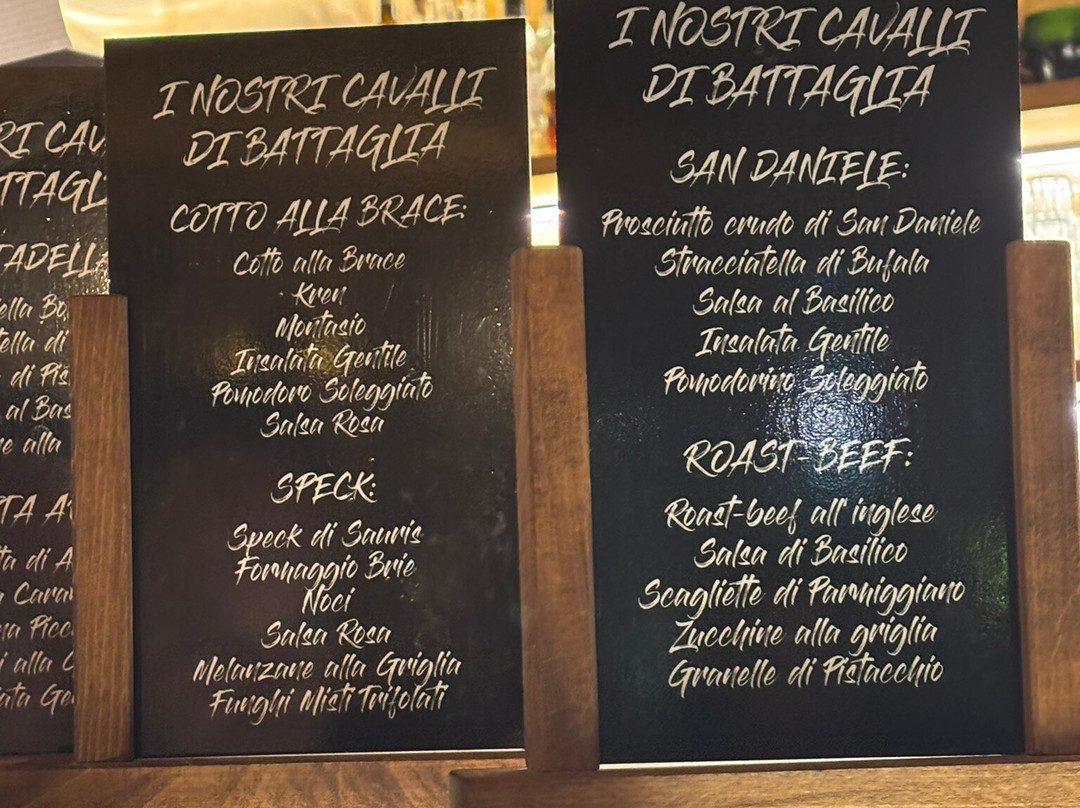 I NOSTRI CAVALLI
DI BATTAGLIA
COTTO ALLA BRACE:
Cotto alla Brace
Kren
Montasio
Insalata Gentile
Pomodoro Soleggiato
Salsa Rosa
SPECK:
Speck di Sauris
Formaggio Brie
Noci
Salsa Rosa
Melanzane alla Griglia
Funghi Misti Trifolati
I NOSTRI CAVALLI
DI BATTAGLIA
SAN DANIELE:
Prosciutto crudo di San Daniele
Stracciatella di Bufala
Salsa al Basilico
Insalata Gentile
Pomodorino Soleggiato
ROAST-BEEF:
Roast-beef all'inglese
Salsa di Basilico
Scagliette di Parmiggiano
Zucchine alla griglia
Granelle di Pistacchio